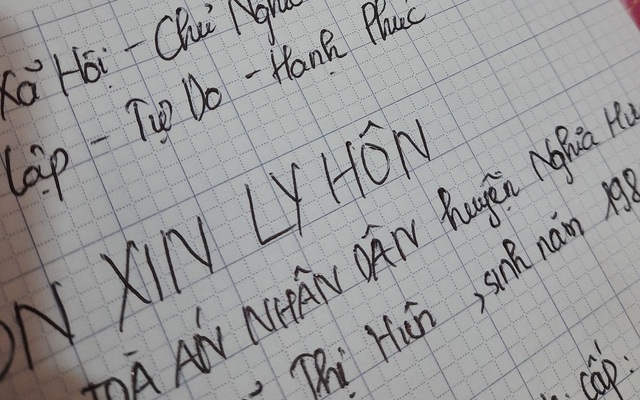 Xã Hội - Chủ Nghĩa
Lập - Tự Do - Hạnh Phúc
ĐN XIN LY HÔN
TOÀ ÁN NHÂN DÂN huyện Nghĩa Hư
Thị Hiên, sinh năm 198
cấp: